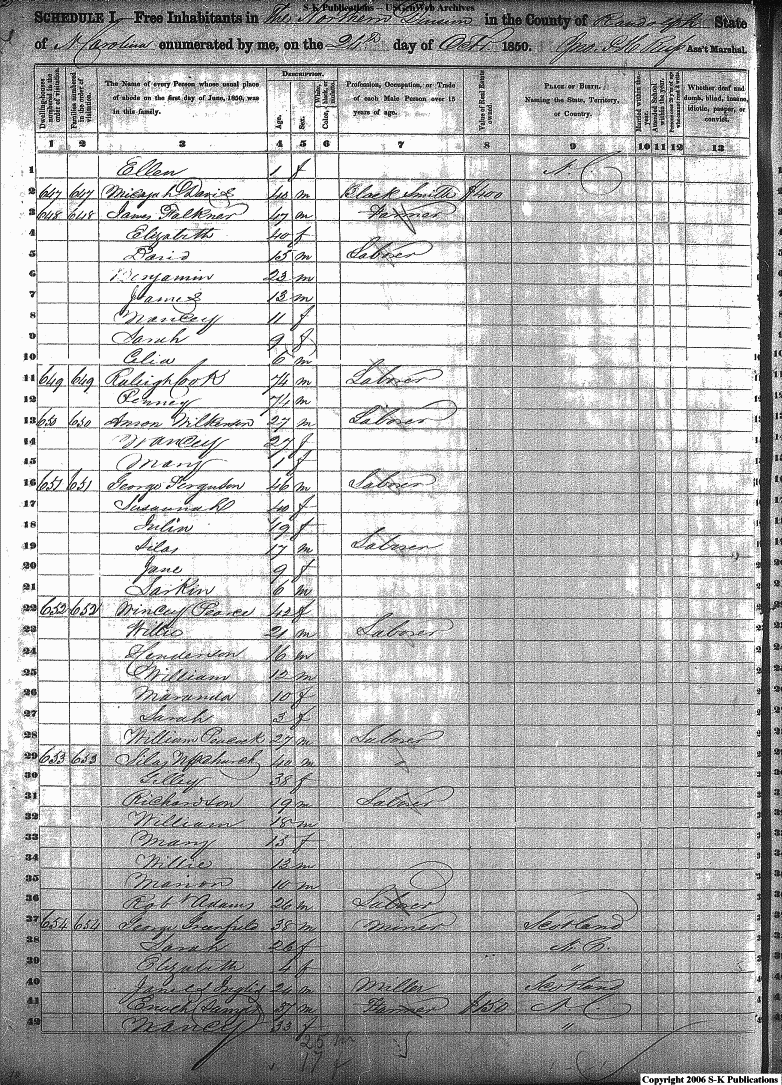 S-K Publications – USGenWeb Archives
SCHEDULE I. Free Inhabitants in The Northern Division in the County of Randolph State
of N Carolina enumerated by me, on the 21st day of Octr 1850. Ass't Marshal.
Dwelling-houses numbered in the order of visitation.
Families numbered in the order of visitation.
The Name of every Person whose usual place of abode on the first day of June, 1850, was in this family.
DESCRIPTION.
Age.
Sex.
Color, White, black, or mulatto.
Profession, Occupation, or Trade of each Male Person over 15 years of age.
Value of Real Estate owned.
PLACE OF BIRTH.
Naming the State, Territory, or Country.
Married within the year.
Attended School within the year.
Whether deaf and dumb, blind, insane, idiotic, pauper, or convict.
1 2 3 4 5 6 7 8 9 10 11 12 13
1 Ellen 1 f N. C
2 647 647 David 40 m Black Smith $400
3 648 648 James Falkner 47 m Farmer
4 Elizabeth 40 f
5 David 15 m Laborer
6 Benjamin 23 m
7 James 13 m
8 Nancey 11 f
9 Sarah 9 f
10 Celia 6 m
11 649 649 Raleigh Cook 74 m Laborer
12 Penney 74 m
13 650 650 Anson Wilkerson 27 m Laborer
14 Nancey 27 f
15 Mary 1 f
16 651 651 George Ferguson 46 m Laborer
17 Susannah 40 f
18 Julia 19 f
19 Silas 17 m Laborer
20 Jane 9 f
21 Larkin 6 m
22 652 652 Wincey Pearce 42 f
23 Willie 21 m Laborer
24 Henderson 16 m
25 William 12 m
26 Maranda 10 f
27 Sarah 3 f
28 William Peacock 27 m Laborer
29 653 653 Silas Upchurch 40 m "
30 Gilley 38 f
31 Richardson 19 m Laborer
32 William 18 m
33 Mary 15 f
34 Willie 12 m
35 Marion 10 m
36 Robt Adams 26 m Laborer
37 654 654 George Greenfield 38 m Miner Scotland
38 Sarah 26 f N. C.
39 Elizabeth 4 f "
40 James Inglis 26 m Miller Scotland
41 Enoch 37 m Farmer $150 N. C
42 Nancy 33 f "
25 m
17 f
Copyright 2006 S-K Publications